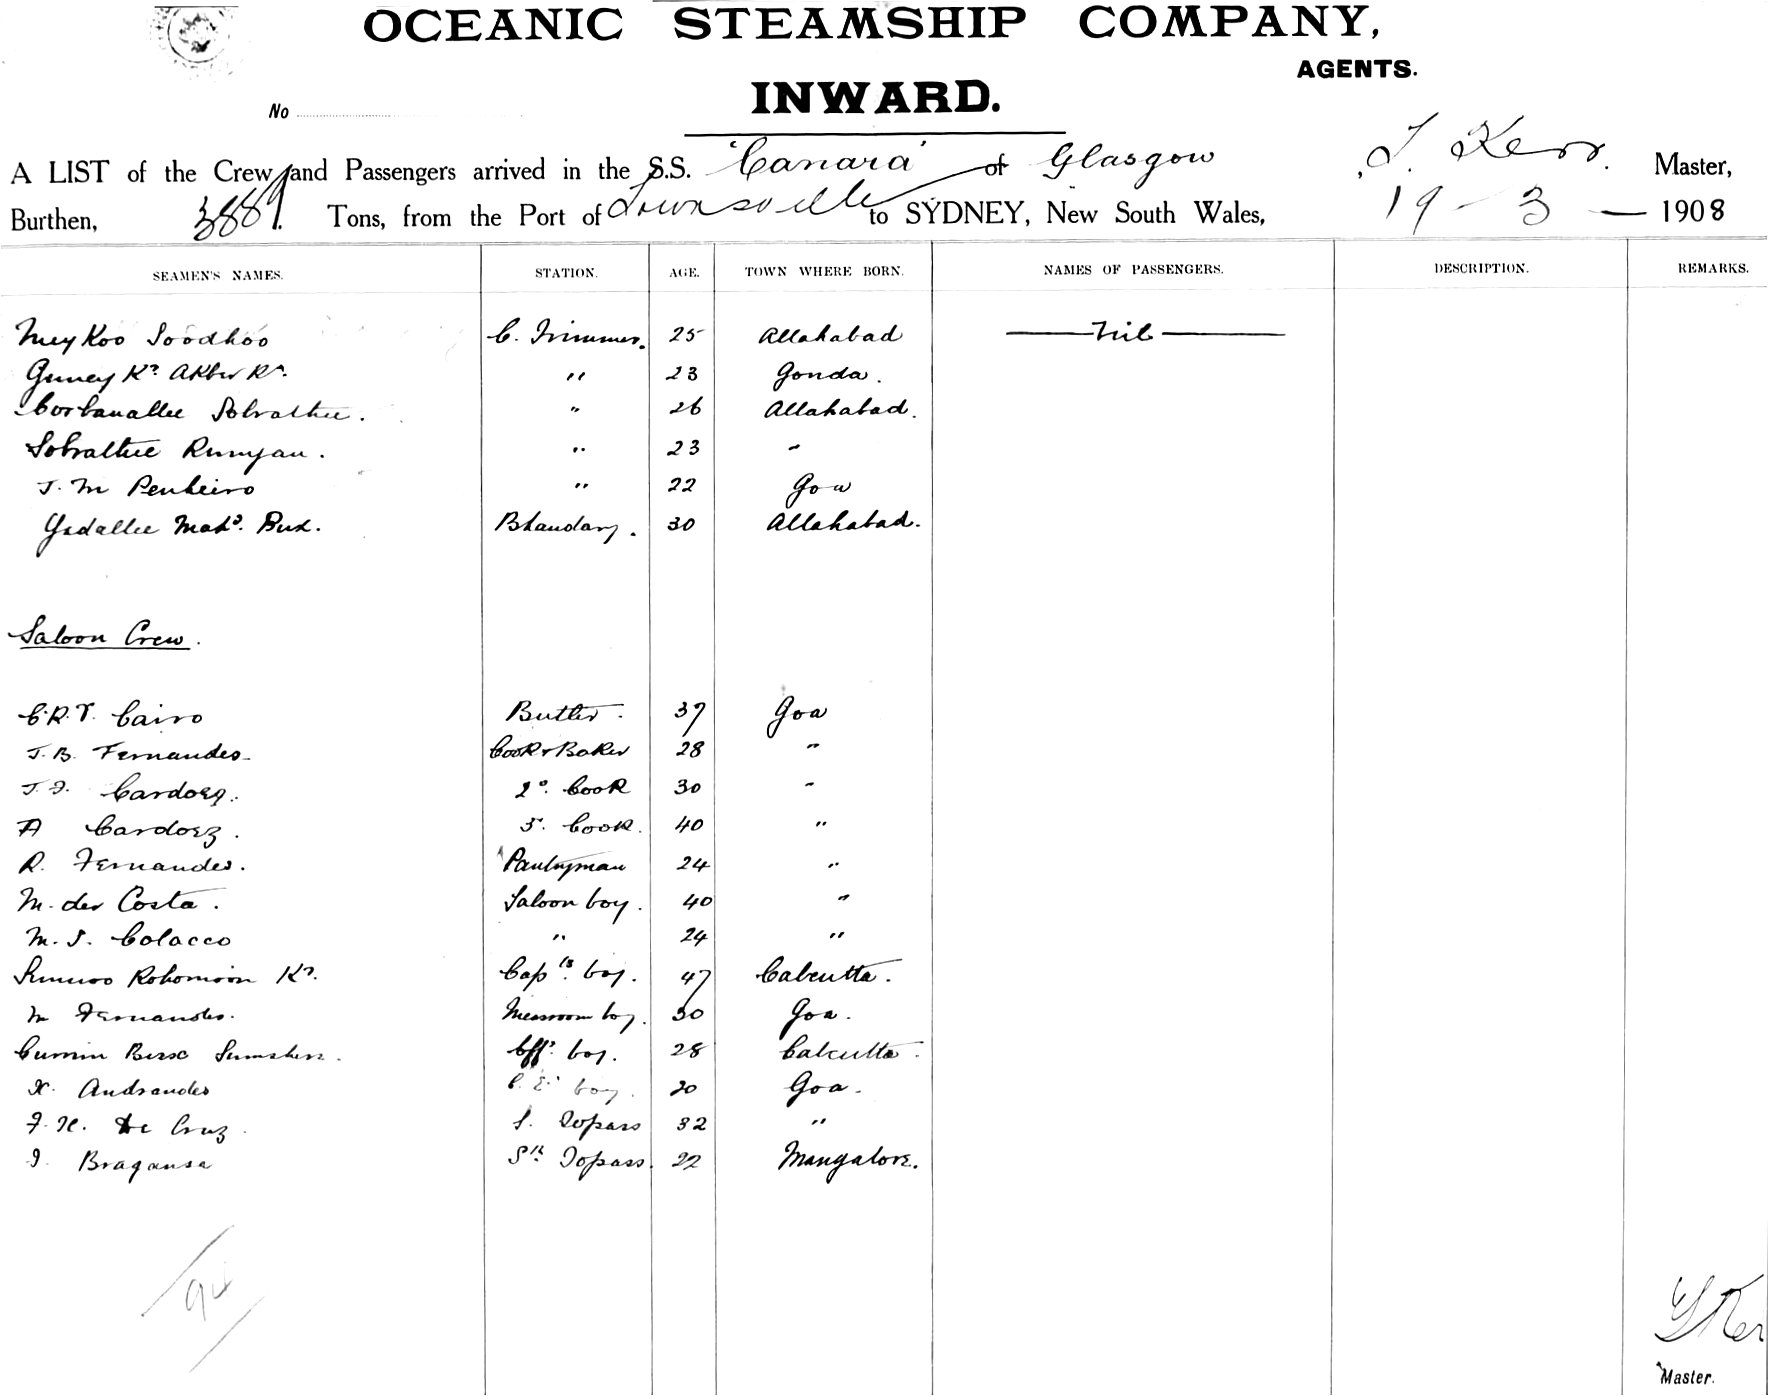 OCEANIC STEAMSHIP COMPANY,
AGENTS.
INWARD.
No
A LIST of the Crew and Passengers arrived in the S.S. "Canara" of Glasgow, J. Kerr. Master,
Burthen, 3889. Tons, from the Port of Townsville to SYDNEY, New South Wales, 19 - 3 - 1908
SEAMEN'S NAMES. STATION. AGE. TOWN WHERE BORN. NAMES OF PASSENGERS. DESCRIPTION. REMARKS.
Meykoo Soodhoo C. Trimmer. 25 Allahabad Nil
Guney Kn. Akber Kn. " 23 Gonda.
Corbanallee Sobrattee. " 26 Allahabad.
Sobrattee Rumjan. " 23 "
J. M Penheiro " 22 Goa
Yadallee Mahd. Bux. Bhandary. 30 Allahabad.
Saloon Crew.
C.R.T. Cairo Butler. 37 Goa
J.B. Fernandes Cook & Baker 28 "
J.F. Cardoez. 2o. Cook 30 "
A Cardoez. 3r. Cook. 40 "
R. Fernandes. Pantryman 24 "
M. der Costa. Saloon boy. 40 "
M. S. Colacco " 24 "
Rohomoon Kn. Capts. boy. 47 Calcutta.
M Fernandes. Messroom boy. 30 Goa.
Cumm Offr. boy. 28 Calcutta.
X. Andrandes C. E. boy. 20 Goa.
F.X. De Cruz. S. Topass 32 "
I. Bragansa Sn. Topass. 22 Mangalore.
94
Master.